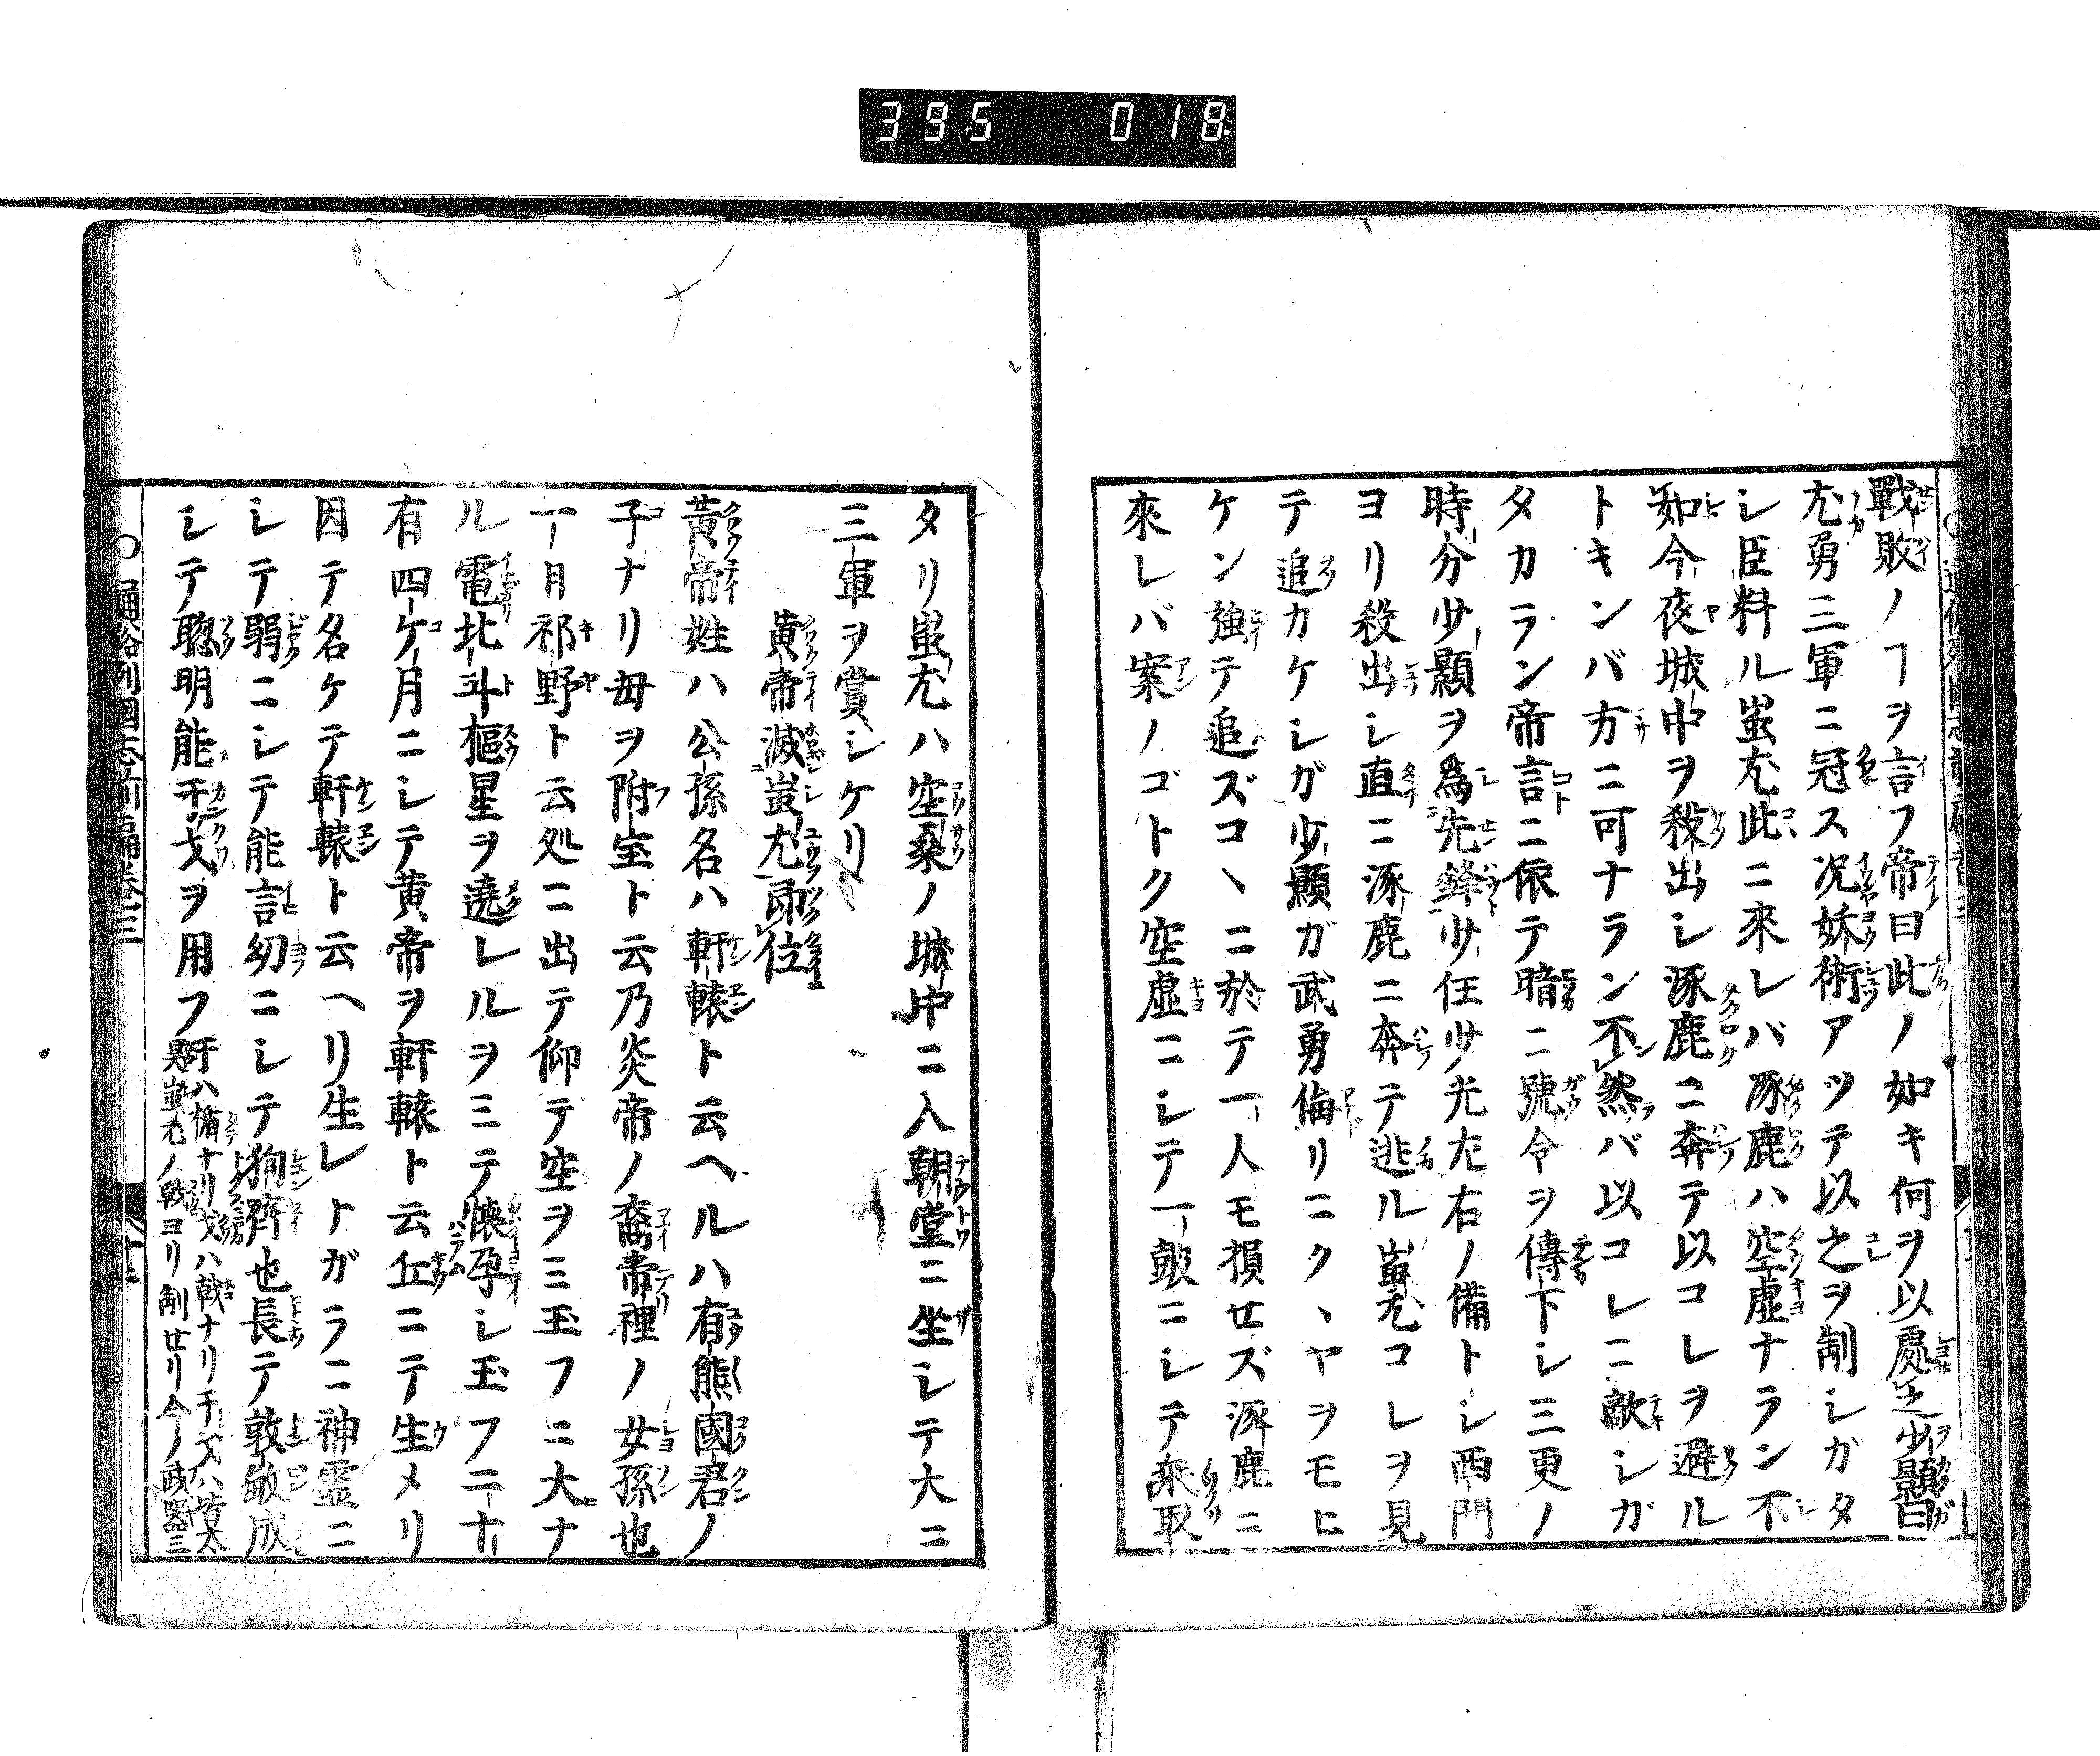 395 018
戰敗ノヿヲ言フ帝曰此ノ如キ何ヲ以處之少顥曰
尤勇三軍ニ冠ス况妖術アツテ以之ヲ制シガタ
シ臣料ル蚩尤此ニ來レバ涿鹿ハ空虚ナラン不
如今夜城中ヲ殺出シ涿鹿ニ奔テ以コレヲ避ル
トキンバ方ニ可ナラン不然バ以コレニ敵シガ
タカラン帝言ニ依テ暗ニ號令ヲ傳下シ三更ノ
時分少顥ヲ爲先鋒少任少光左右ノ備トシ西門
ヨリ殺出シ直ニ涿鹿ニ奔テ逃ル蚩尤コレヲ見
テ追カケシガ少顥ガ武勇倫リニクヽヤヲモヒ
ケン強テ追ズコヽニ於テ一人モ損セズ涿鹿ニ
來レバ案ノゴトク空虚ニシテ一皷ニシテ乗取
タリ蚩尤ハ空桑ノ城中ニ入朝堂ニ坐シテ大ニ
三軍ヲ賞シケリ
黄帝滅蚩尤即位
黃帝姓ハ公孫名ハ軒轅ト云ヘルハ有熊國君ノ
子ナリ毎ヲ附宝ト云乃炎帝ノ裔帝裡ノ女孫也
一日祁野ト云処ニ出テ仰テ空ヲミ玉フニ大ナ
ル電北斗樞星ヲ遶レルヲミテ懐孕シ玉フ二十
有四ケ月ニシテ黄帝ヲ軒轅ト云丘ニテ生メリ
因テ名ケテ軒轅ト云ヘリ生レトガラニ神霊ニ
シテ弱ニシテ能言幼ニシテ狥齊也長テ敦敏成
シテ聰明能干戈ヲ用フ
干ハ楯ナリ戈ハ戟ナリ干戈ハ皆太
昊蚩尤ノ戰ヨリ制セリ今ノ武器ニ
通俗列國志前編卷三